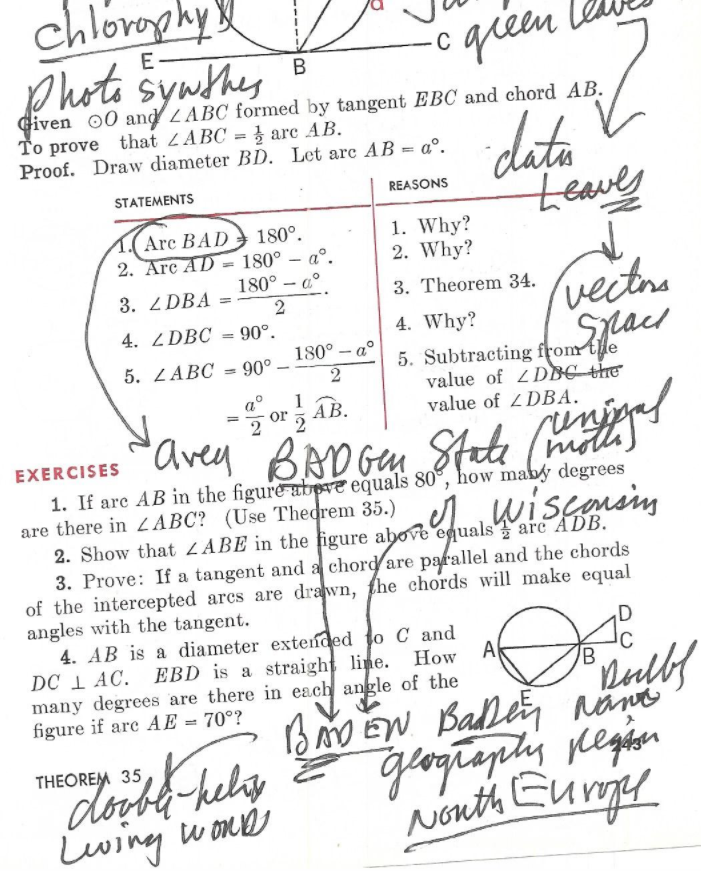 chlorophyll
green leaves
a
E
B
C
Photo synthes
Given ⊙O and ∠ABC formed by tangent EBC and chord AB.
To prove that ∠ABC = ½ arc AB.
Proof. Draw diameter BD. Let arc AB = a°.
data
Leaves
STATEMENTS
REASONS
1. Arc BAD = 180°.
1. Why?
2. Arc AD = 180° − a°.
2. Why?
3. ∠DBA = (180° − a°)/2.
3. Theorem 34.
vectors
space
4. ∠DBC = 90°.
4. Why?
5. ∠ABC = 90° − (180° − a°)/2
5. Subtracting from the
value of ∠DBC the
= a°/2 or 1/2 AB.
value of ∠DBA.
BADGer State
EXERCISES
1. If arc AB in the figure above equals 80°, how many degrees
are there in ∠ABC? (Use Theorem 35.)
of Wisconsin
2. Show that ∠ABE in the figure above equals ½ arc ADB.
3. Prove: If a tangent and a chord are parallel and the chords
of the intercepted arcs are drawn, the chords will make equal
angles with the tangent.
4. AB is a diameter extended to C and
DC ⊥ AC. EBD is a straight line. How
many degrees are there in each angle of the
figure if arc AE = 70°?
D
A
C
B
E
Double
BADEN Baden Name
geography Region
North Europe
THEOREM 35
243
double-helix
Living words